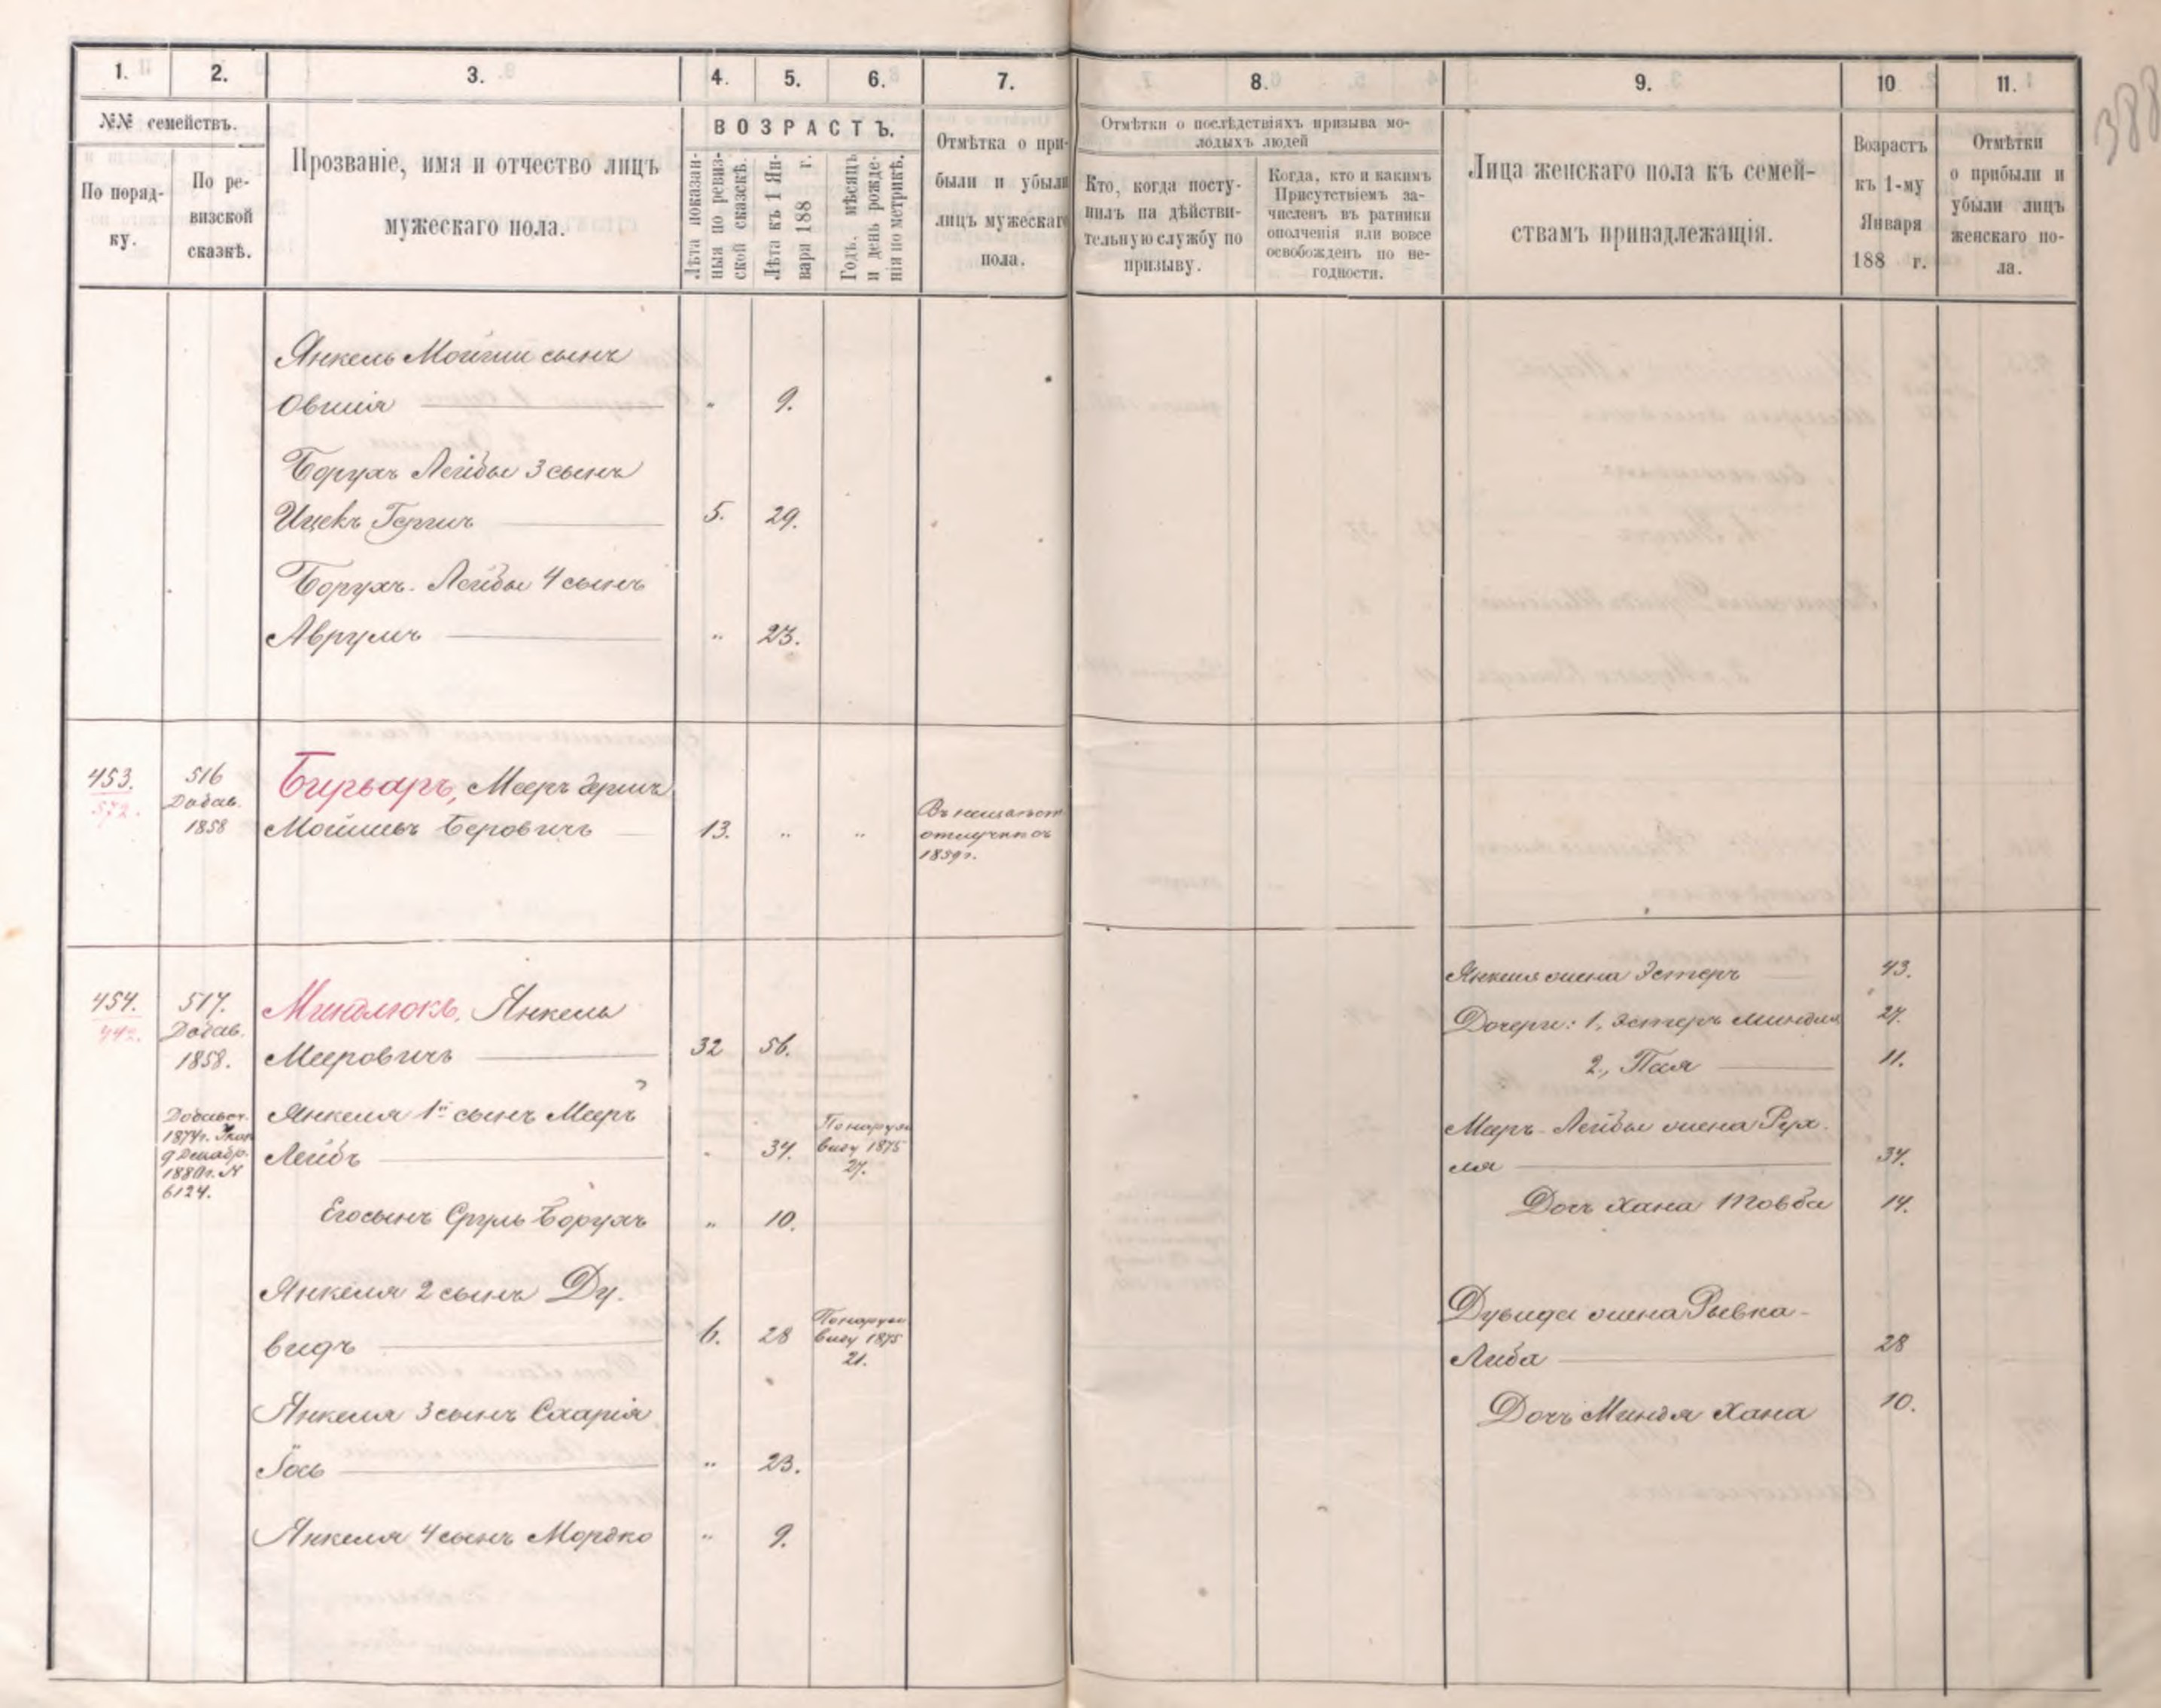 388
1. 2. 3. 4. 5. 6. 7. 8. 9. 10 11.
№№ семействъ.
По порядку.
По ревизской сказкѣ.
Прозваніе, имя и отчество лицъ
мужескаго пола.
ВОЗРАСТЪ.
Лѣта показанныя по ревизской сказкѣ.
Лѣта къ 1 Января 188 г.
Годъ, мѣсяцъ и день рожденія по метрикѣ.
Отмѣтка о прибыли и убыли лицъ мужескаго пола.
Отмѣтки о послѣдствіяхъ призыва мо-
лодыхъ людей
Кто, когда посту-
пилъ на дѣйстви-
тельную службу по
призыву.
Когда, кто и какимъ
Присутствіемъ за-
численъ въ ратники
ополченія или вовсе
освобожденъ по не-
годности.
Лица женскаго пола къ семей-
ствамъ принадлежащія.
Возрастъ
къ 1-му
Января
188 г.
Отмѣтки
о прибыли и
убыли лицъ
женскаго по-
ла.
Янкель Мойши сынъ
Овшія " 9.
Борухъ Лейбы 3 сынъ
Ицекъ Гершъ 5. 29.
Борухъ-Лейбы 4 сынъ
Аврумъ " 23.
453. 516 Бирбаръ, Мееръ Гершъ
572. Добав.
1858 Мойшевъ Беровичъ 13. " "
отлучкѣ съ
1859г.
454. 517. Миндлюкъ, Янкель
442. Добав.
1858. Мееровичъ 32 56.
Янкеля жена Эстеръ 43.
Дочери: 1, Эстеръ Миндля 27.
2., Пая 11.
1874г.
9 Декабр.
1880г. №
6124.
Янкеля 1й сынъ Мееръ
Лейбъ " 34.
По наруж
виду 1875
27.
Мееръ-Лейбы жена Рух-
ля 34.
Его сынъ Сруль Борухъ " 10.
Дочь Хана Товба 14.
Янкеля 2 сынъ Ду-
видъ 6. 28
По наруж
виду 1875
21.
Дувида жена Рывка-
Либа 28
Янкеля 3 сынъ Схарія
Іось " 23.
Дочь Миндя Хана 10.
Янкеля 4 сынъ Мордко " 9.